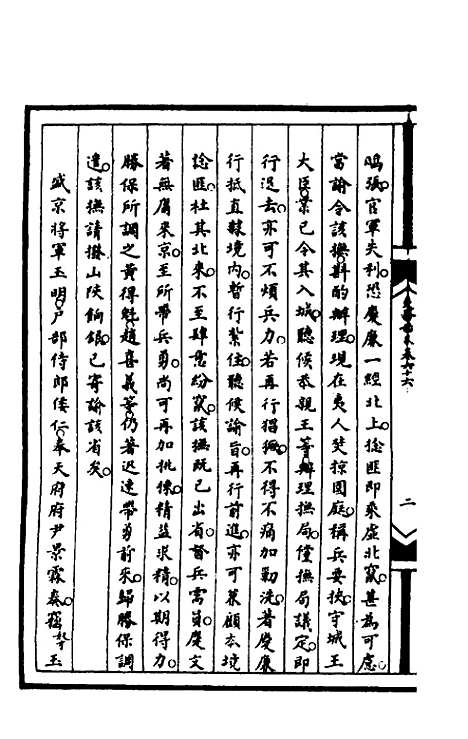 鴟張。官軍失利。恐慶廉一經北上。捻匪即乘虛北竄。甚為可慮。
當諭令該撫斟酌辦理。現在夷人焚掠園庭。稱兵要挾。守城王
大臣業已令其入城。聽候恭親王等辦理撫局。僅撫局議定。即
行退去。亦可不煩兵力。若再行猖獗。不得不痛加勦洗。著慶廉
行抵直隸境內。暫行紮住。聽候諭旨。再行前進。亦可兼顧本境
捻匪杜其北來。不至肆意紛竄。該撫既已出省。督兵需員。慶文
著無庸來京。至所帶兵勇。尚可再加挑揀。精益求精。以期得力。
勝保所調之黃得魁。趙喜義等。仍著迅速帶勇前來。歸勝保調
遣。該撫請撥山陝餉銀。已寄諭該省矣。
盛京將軍玉明。戶部侍郎倭仁。奉天府府尹景霖奏。竊玉
二